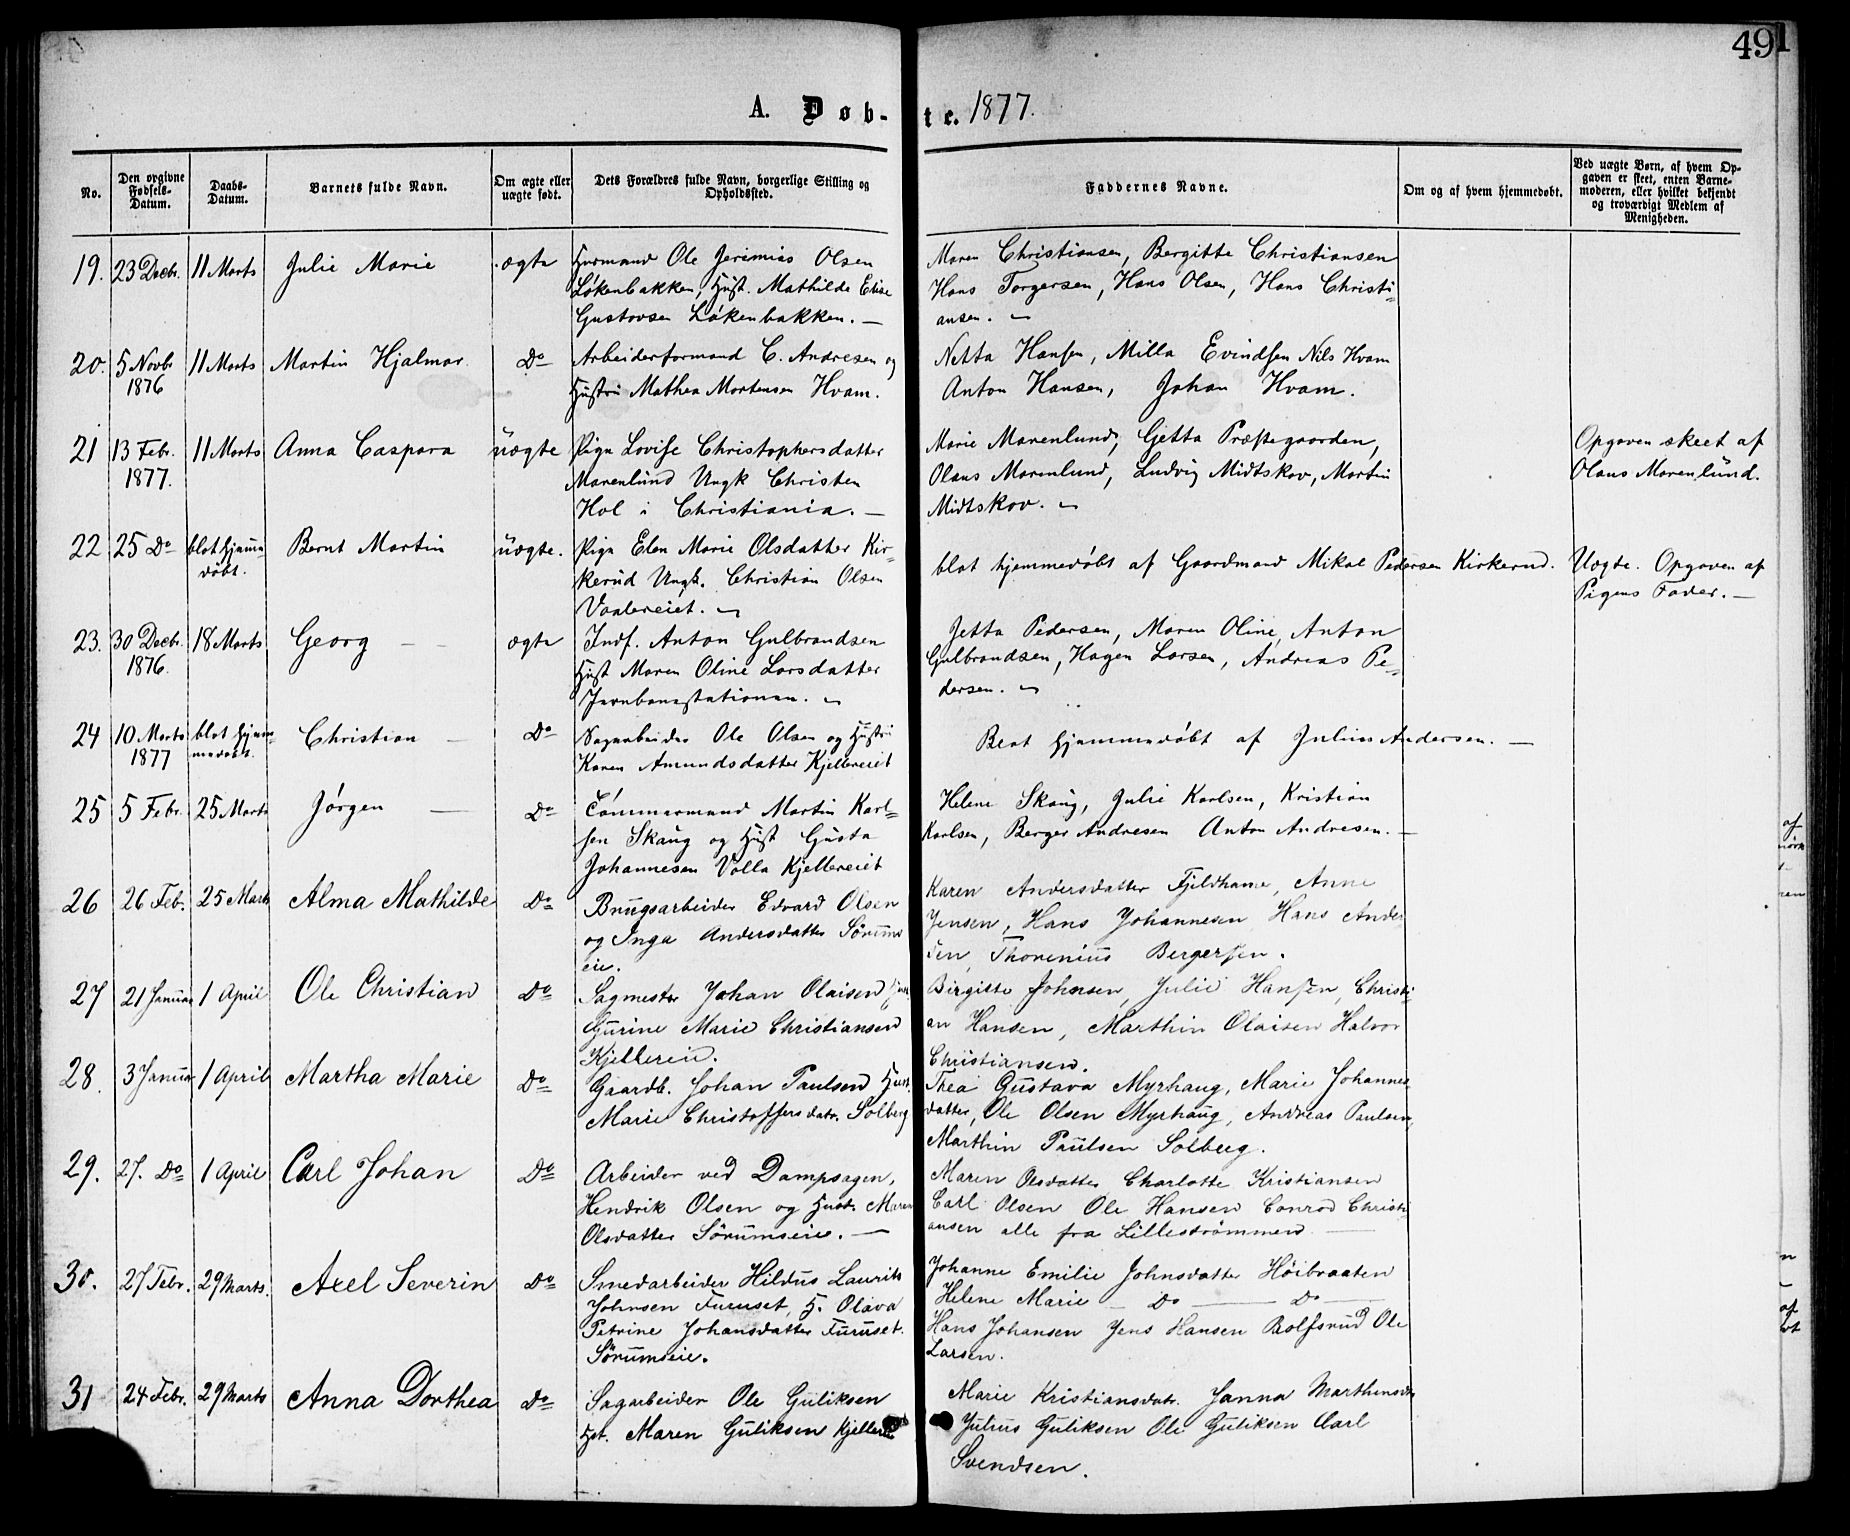 491
A. Døb-te. 1877.
No.
Den opgivne Fødsels-Datum.
Daabs-Datum.
Barnets fulde Navn.
Om ægte eller uægte født.
Dets Forældres fulde Navn, borgerlige Stilling og Opholdssted.
Faddernes Navne.
Om og af hvem hjemmedøbt.
Ved uægte Børn, af hvem Opgaven er skeet, enten Barnemoderen, eller hvilket bekjendt og troværdigt Medlem af Menigheden.
19. 23 Decbr. 11 Marts Julie Marie ægte Husmand Ole Jerimias Olsen
Løkenbakken, Hust. Mathilde Elise
Gustavsen Løkenbakken. —
Maren Christiansen, Bergitte Christiansen
Hans Torgersen, Hans Olsen, Hans Christi=
ansen.
20. 5 Novbr 1876 11 Marts Martin Hjalmar. Do Arbeiderformand C. Andresen og
Hustru Mathea Mortensen Hvam.
Netta Hansen, Milla Evindsen Nils Hvam
Anton Hansen, Johan Hvam.
21 13 Febr. 1877. 11 Marts Anna Caspara uægte Pige Lovise Christophersdatter
Marenlund Ungk Christen
Hol i Christiania. —
Marie Marenlund, Getta Præstegaarden,
Olaus Marenlund, Ludvig Midtskov, Martin
Midtskov.
Opgaven skeet af
Olaus Marenlund.
22 25 Do blot hjemme døbt. Bernt Martin uægte. Pige Elen Marie Olsdatter Kir-
kerud Ungk. Christian Olsen
Vaalereiet.
blot hjemmedøbt af Gaardmand Mikal Pedersen Kirkerud.
Uægte. Opgaven af
Pigens Fader. —
23. 30 Decbr. 1876. 18 Marts Georg — ægte Indf. Anton Gulbrandsen
Hust Maren Oline Larsdatter
Jernbanestationen.
Jetta Pedersen, Maren Oline, Anton
Gulbrandsen, Hagen Larsen, Andreas Pe=
dersen.
24 10 Marts 1877 blot hjem= medøbt. Christian — Do Sagarbeider Ole Olsen og Hustru
Karen Amundsdatter Kjellereiet
Blot hjemmedøbt af Julius Andersen. —
25 5 Febr. 25 Marts Jørgen — Do Tømmermand Martin Karl=
sen Skaug og Hust Gusta
Johannesen Volla Kjellereiet
Helene Skaug, Julie Karlsen, Kristian
Karlsen, Berger Andresen Anton Andresen. —
26 26 Feb. 25 Marts Alma Mathilde Do Brugsarbeider Edvard Olsen
og Inga Andersdatter Sörums
eie.
Karen Andersdatter Fjeldhame, Anne
Jensen, Hans Johannesen Hans Ander
sen, Thorenius Bergersen.
27 21 Januar 1 April Ole Christian Do Sagmester Johan Olaisen
Gurine Marie Christiansen
Kjellereie.
Birgitte Johnsen, Julie Hansen, Christi=
an Hansen, Marthin Olaisen Halvor
Christiansen.
28. 3 Januar 1 April Martha Marie Do Gaardb. Johan Paulsen Hust.
Marie Christoffersdatr. Solberg
Thea Gustava Myrhaug, Marie Johannes=
datter, Ole Olsen Myrhaug, Andreas Paulsen,
Marthin Paulsen Solberg.
29. 27. Do 1 April Carl Johan Do Arbeider ved Dampsagen,
Hendrik Olsen og Hust. Maren
Olsdatter Sörumseie. —
Maren Olsdatter Charlotte Kristiansen
Carl Olsen Ole Hansen Conrad Christi=
ansen alle fra Lilleströmmen —
30. 27 Febr. 29 Marts. Axel Severin Do Smedarbeider Hildus Laurits
Johnsen Furuset, H. Olava
Petrine Johansdatter Furuset.
Sörumseie.
Johanne Emilie Johnsdatter Höibraaten
Helene Marie — Do — Do —
Hans Johansen Jens Hansen Rolfsrud Ole
Larsen.
31 24 Febr. 29 Marts Anna Dorthea Do Sagarbeider Ole Guliksen
Hst. Maren Guliksen
Marie Kristiansdatr. Janna Marthinsdr
Julius Guliksen Ole Guliksen Carl
Svendsen.